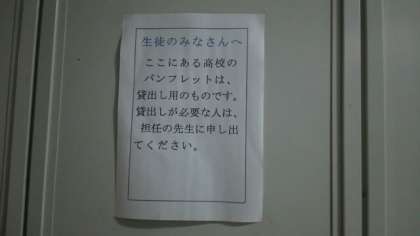 生徒のみなさんへ
ここにある高校の
パンフレットは、
貸出し用のものです。
貸出しが必要な人は、
担任の先生に申し出
てください。